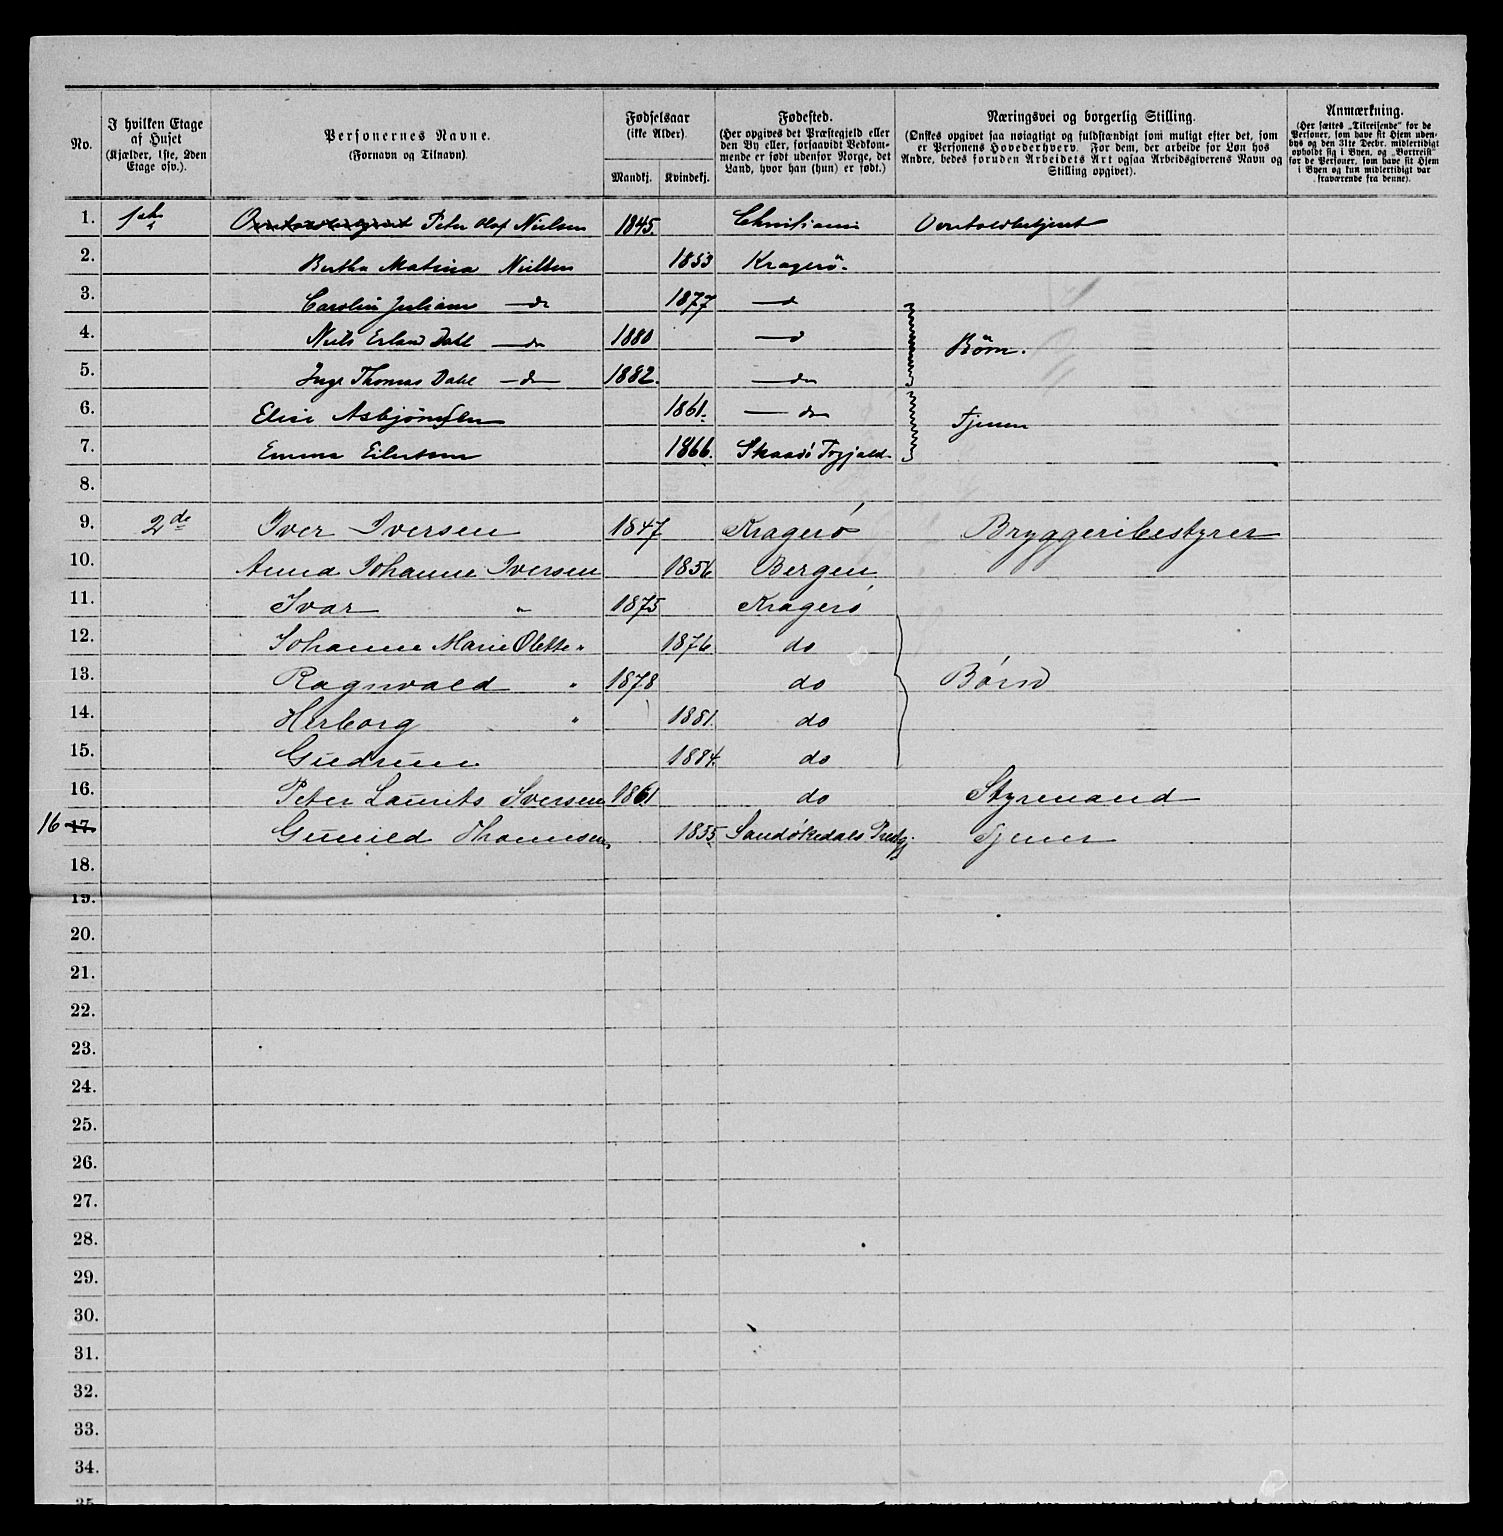 No.
I hvilken Etage
af Huset
(Kjælder, 1ste, 2den
Etage osv.).
Personernes Navne.
(Fornavn og Tilnavn).
Fødselsaar
(ikke Alder).
Mandkj. Kvindekj.
Fødested.
(Her opgives det Præstegjeld eller
den By eller, forsaavidt Vedkom-
mende er født udenfor Norge, det
Land, hvor han (hun) er født.)
Næringsvei og borgerlig Stilling.
(Ønskes opgivet saa nøiagtigt og fuldstændigt som muligt efter det, som
er Personens Hovederhverv. For dem, der arbeide for Løn hos
Andre, bedes foruden Arbeidets Art ogsaa Arbeidsgiverens Navn og
Stilling opgivet).
Anmærkning.
(Her sættes „Tilreisende“ for de
Personer, som have sit Hjem uden-
bys og den 31te Decbr. midlertidigt
opholdt sig i Byen, og „Bortreist“
for de Personer, som have sit Hjem
i Byen og kun midlertidigt var
fraværende fra denne).
1. 1ste Overtoldbetjent Peter Olaf Nielsen 1845. Christiania Overtoldbetjent
2. Bertha Matina Nielsen 1853 Kragerö.
3. Caroline Juliane —do 1877 —do
4. Niels Erland Dahl —do 1880 —do Börn.
5. Inge Thomas Dahl —do— 1882. —do
6. Elise Asbjörnsen 1861. —do Tjener
7. Emma Eilertsen 1866. Skaadö Prgjæld.
8.
9. 2de Iver Iversen 1847 Kragerø Bryggeribestyrer
10. Anna Johanne Iversen 1856 Bergen
11. Ivar " 1875 Kragerø
12. Johanne Marie Olette " 1876 do
13. Ragnvald " 1878 do Børn
14. Herborg " 1881. do
15. Gudrun 1884. do
16. Peter Laurits Iversen 1861 do Styrmand
16 17. Gunild Thomsen 1855. Sandøkedals Prestgj. Tjener
18.
19.
20.
21.
22.
23.
24.
25.
26.
27.
28.
29.
30.
31.
32.
33.
34.
35.